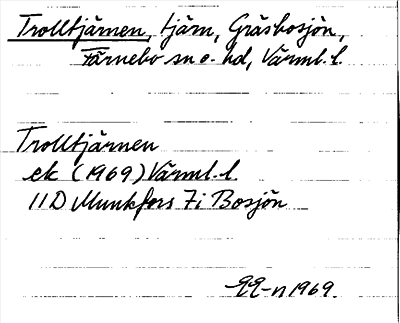 Trolltjärnen, tjärn, Gräsbosjön,
Färnebo sn o. hd, Värml. l.
Trolltjärnen
ek (1969) Värml. l.
11D Munkfors 7i Bosjön
1969.